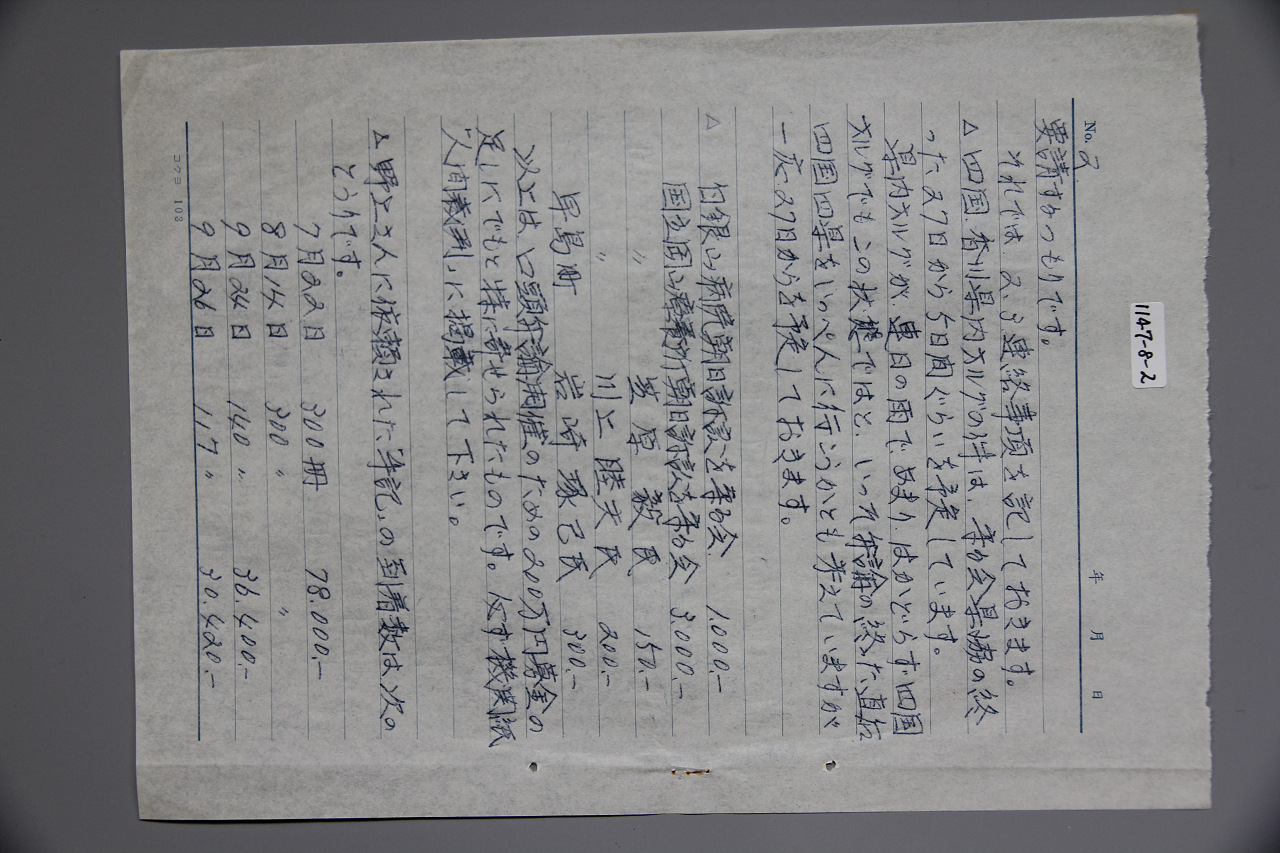 1147-8-2
No. 2
年 月 日
要請するつもりです。
それでは 2、3 連絡事項を記しておきます。
△ 四国 香川県内オルグの件は、守る会県協の終
った27日から5日間ぐらいを予定しています。
県内オルグが、連日の雨であまり はかどらず四国
オルグでも この状態ではと、いっそ弁論の終った直后
四国四県をいっぺんに行こうかとも考えていますが
一応、27日からを予定しておきます。
△ 白銀山病院朝日訴訟を守る会 1.000.-
国立岡山療養所朝日訴訟を守る会 3.000.-
〃 原 毅 氏 150.-
〃 川上 睦夫 氏 200.-
早島町 岩崎 琢己氏 300.-
以上は、口頭弁論開催のための200万円募金の
足しにでもと特に寄せられたものです。必ず機関紙
"人間裁判"に掲載して下さい。
△ 野上さんに依頼された「手記」の到着数は次の
とうりです。
7月22日 300冊 78.000.-
8月14日 300 〃 〃
9月24日 140 〃 36.400.-
9月26日 117 〃 30.420.-
コクヨ 108